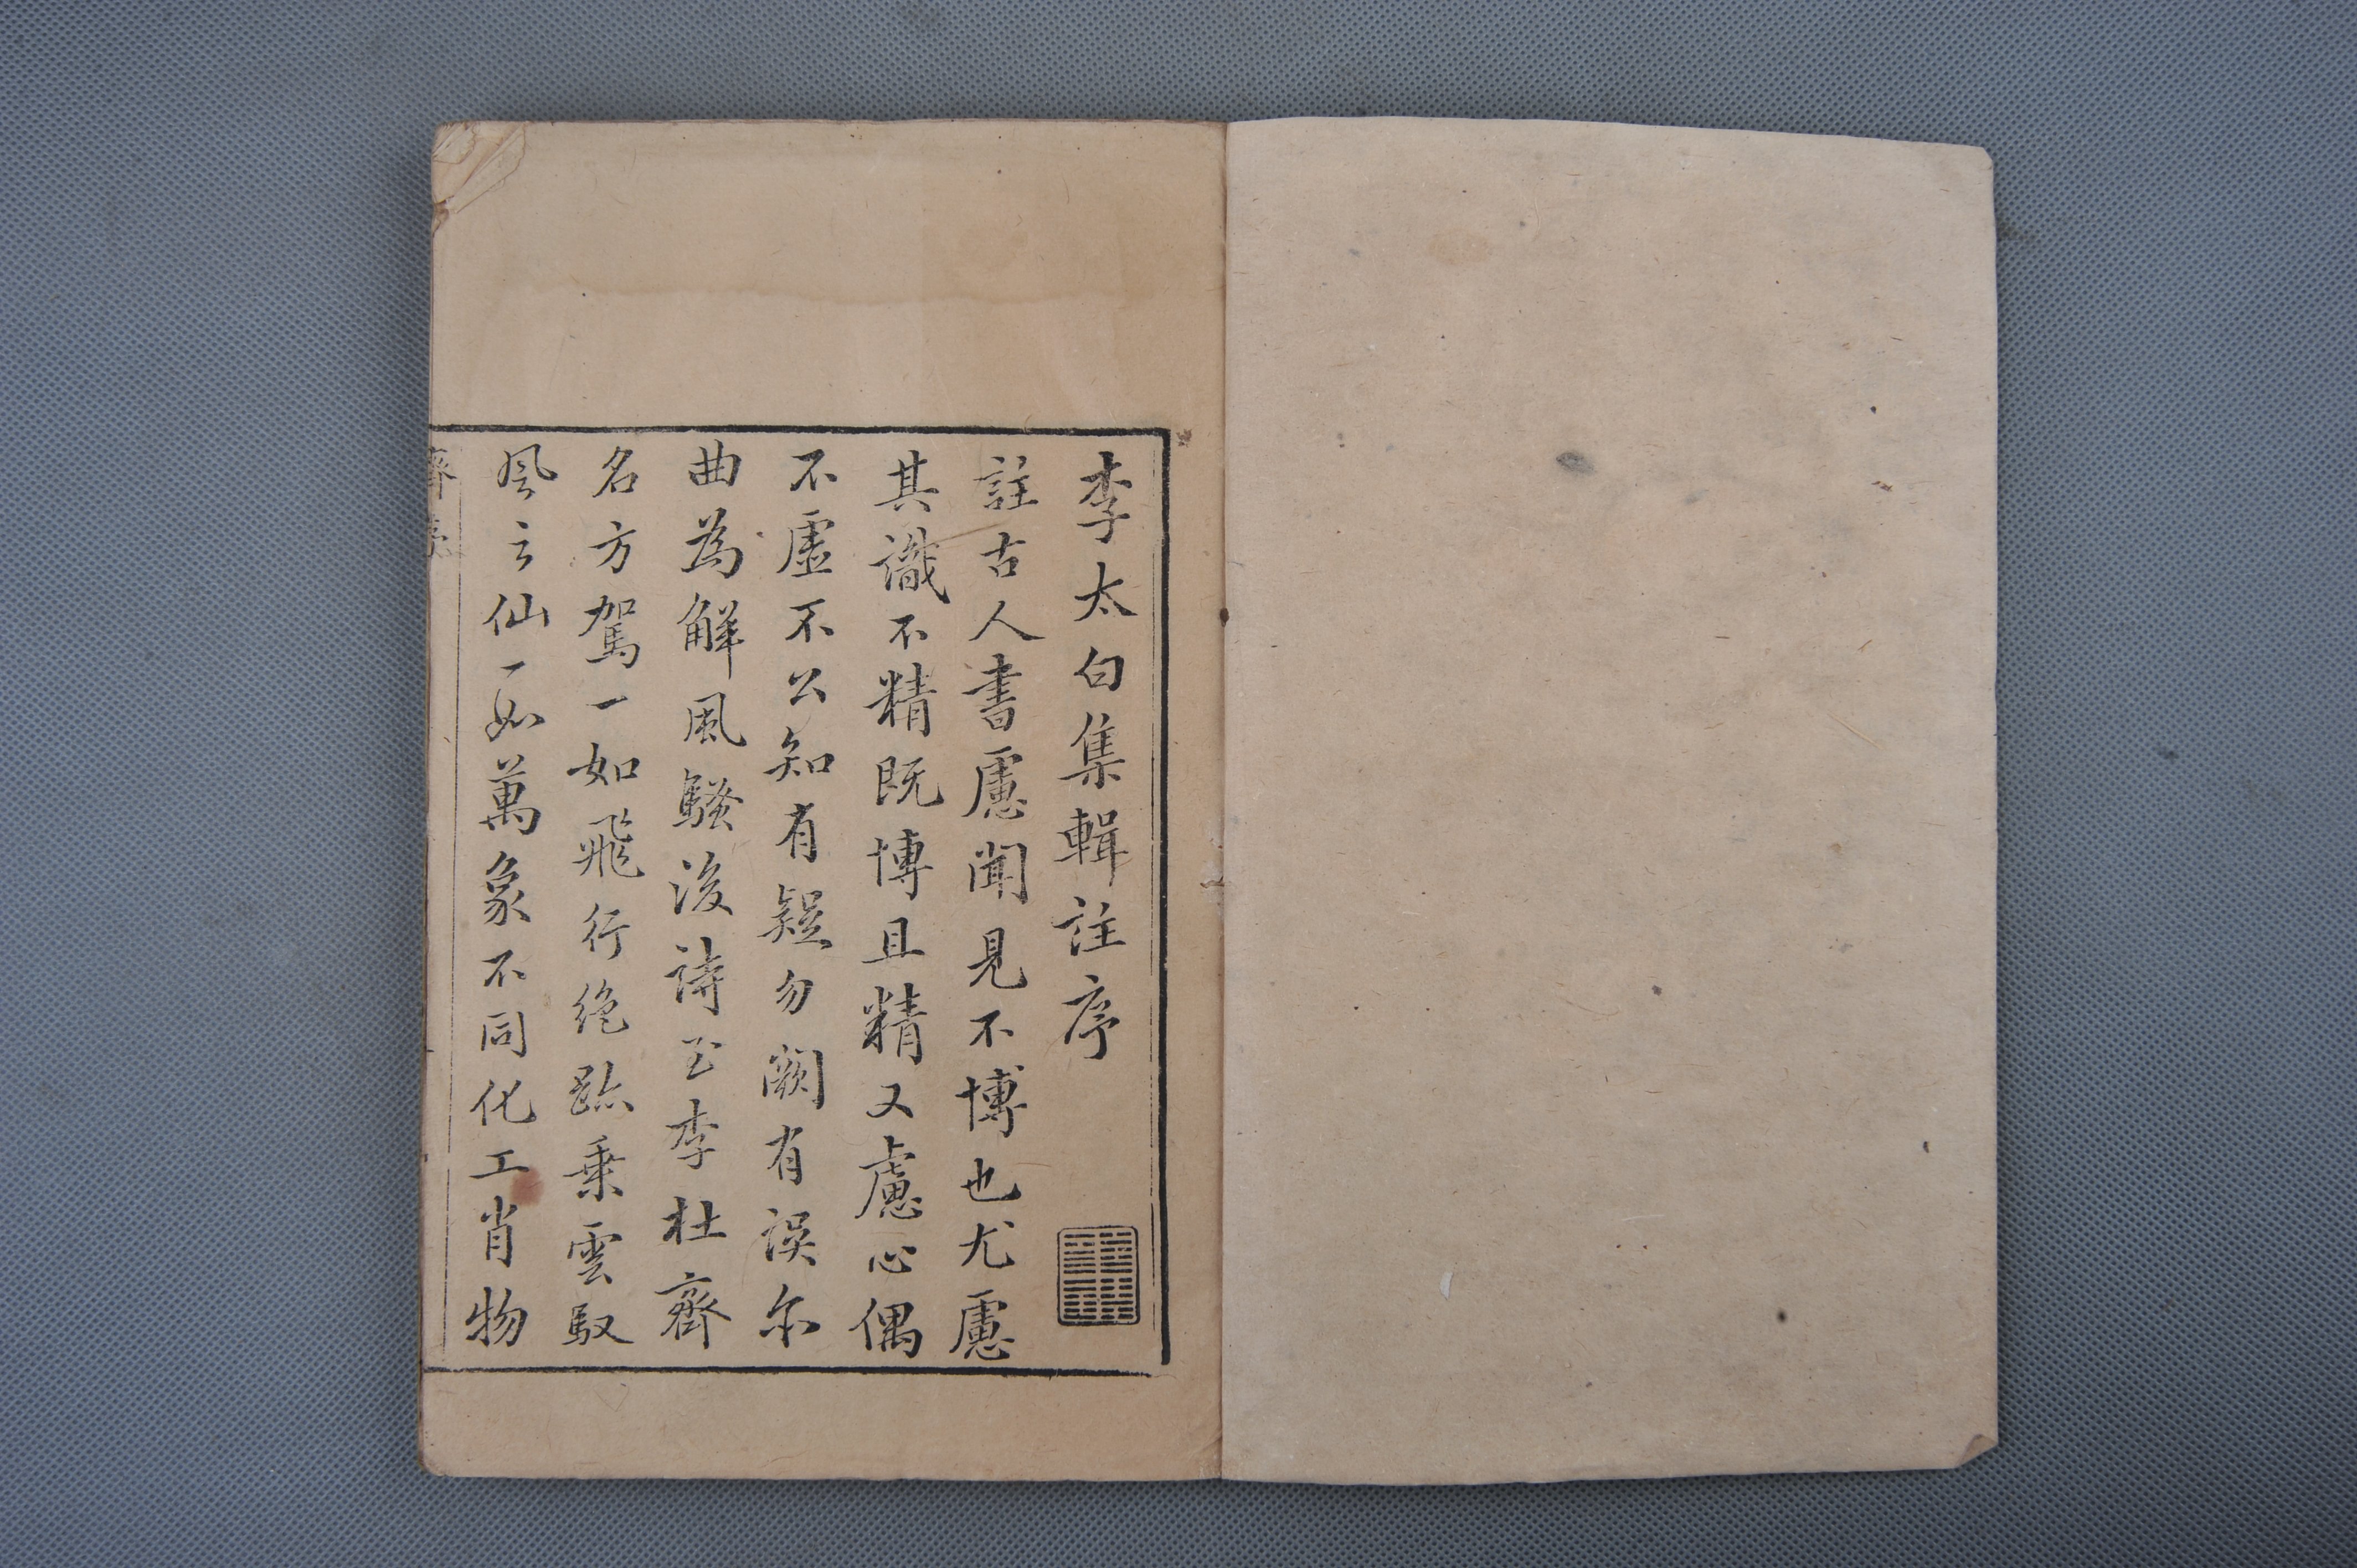 李太白集輯註序
註古人書慮聞見不博也尤慮
其識不精既博且精又慮心偶
不虛不公知有疑勿闕有误尔
曲為解風騷後詩至李杜齊
名方駕一如飛行絶跡乘雲馭
风之仙一如萬象不同化工肖物